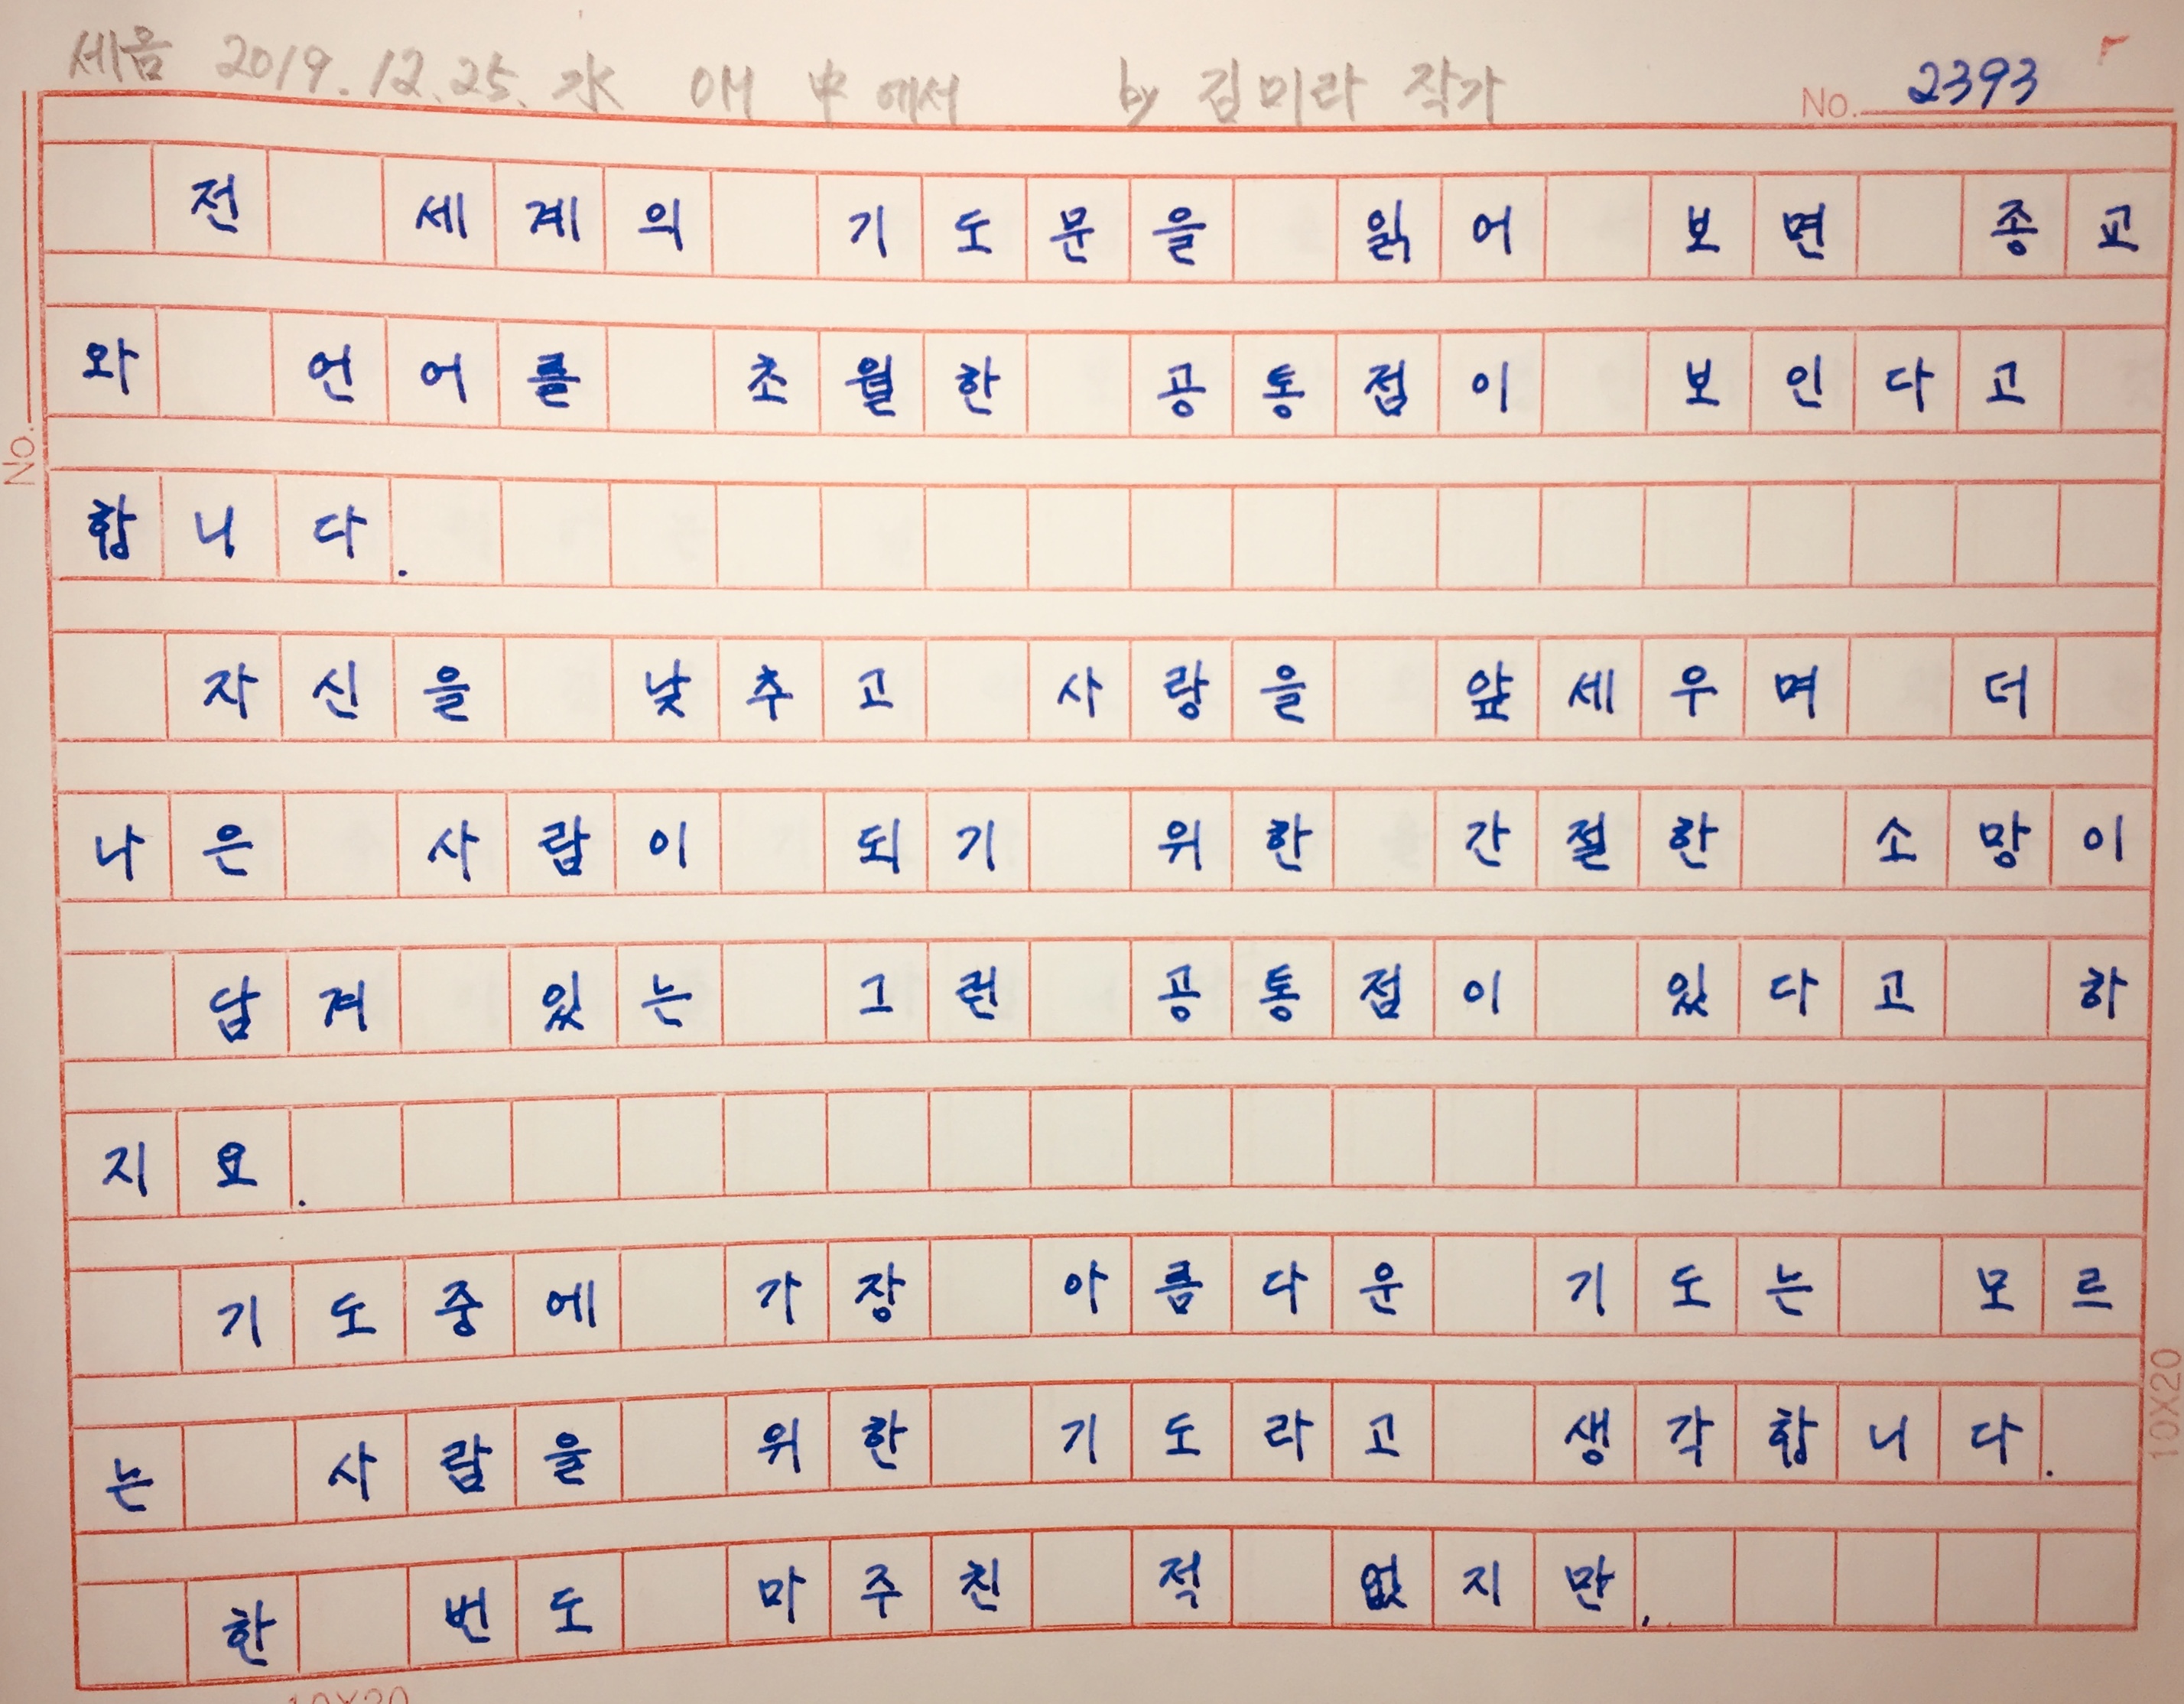 세음 2019.12.25. 水 애 中에서 by 김미라 작가
No. 2393
전 세계의 기도문을 읽어 보면 종교
와 언어를 초월한 공통점이 보인다고
합니다.
자신을 낮추고 사랑을 앞세우며 더
나은 사람이 되기 위한 간절한 소망이
담겨 있는 그런 공통점이 있다고 하
지요.
기도중에 가장 아름다운 기도는 모르
는 사람을 위한 기도라고 생각합니다.
한 번도 마주친 적 없지만,
No.
10X20
10X20